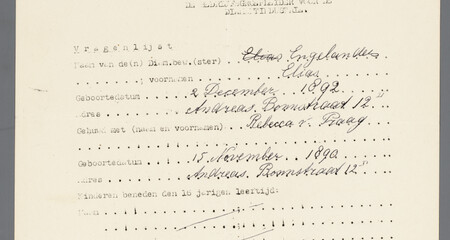 Vragenlijst
Naam van de(n) Diam.bew.(ster) ~~Elias~~ Engelander
; voornamen Elias
Geboortedatum 2 December 1892
Adres Andreas Bonnstraat 12 II
Gehuwd met (naam en voornamen) Rebecca v. Praag
Geboortedatum 15 November 1890
Adres Andreas Bonnstraat 12 II
Kinderen beneden den 16 jarigen leeftijd:
Naam